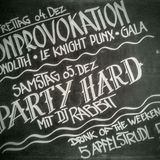 FREITAG 04. DEZ
ONPROVOKATION
ONOLITH • LE KNIGHT PUNX • GALA
SAMSTAG 05. DEZ
PARTY HARD
MIT DJ RABBIT
DRINK OF THE WEEKEN
5 APFLSTRUDL